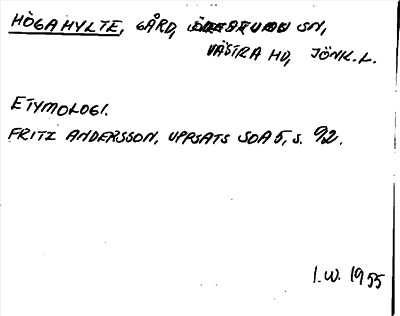 HÖGAHYLTE, GÅRD, SN,
VÄSTRA HD, JÖNK. L.
ETYMOLOGI.
FRITZ ANDERSSON, UPPSATS SOA 5, S. 92.
I.W. 1955